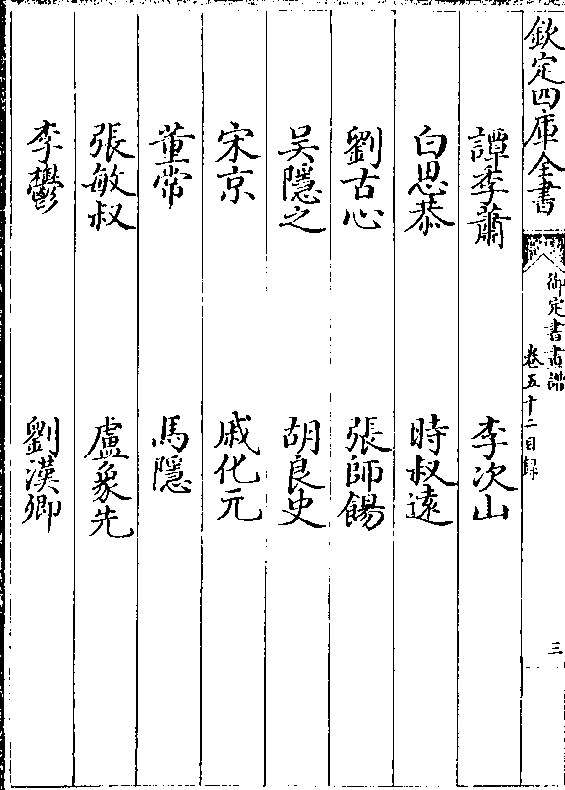 欽定四庫全書
御定書畫譜
卷五十二目録
三
譚季蕭
李次山
白思恭
時叔遠
劉古心
張師錫
吴隱之
胡良史
宋京
戚化元
董常
馬隱
張敏叔
盧象先
李鬱
劉漢卿